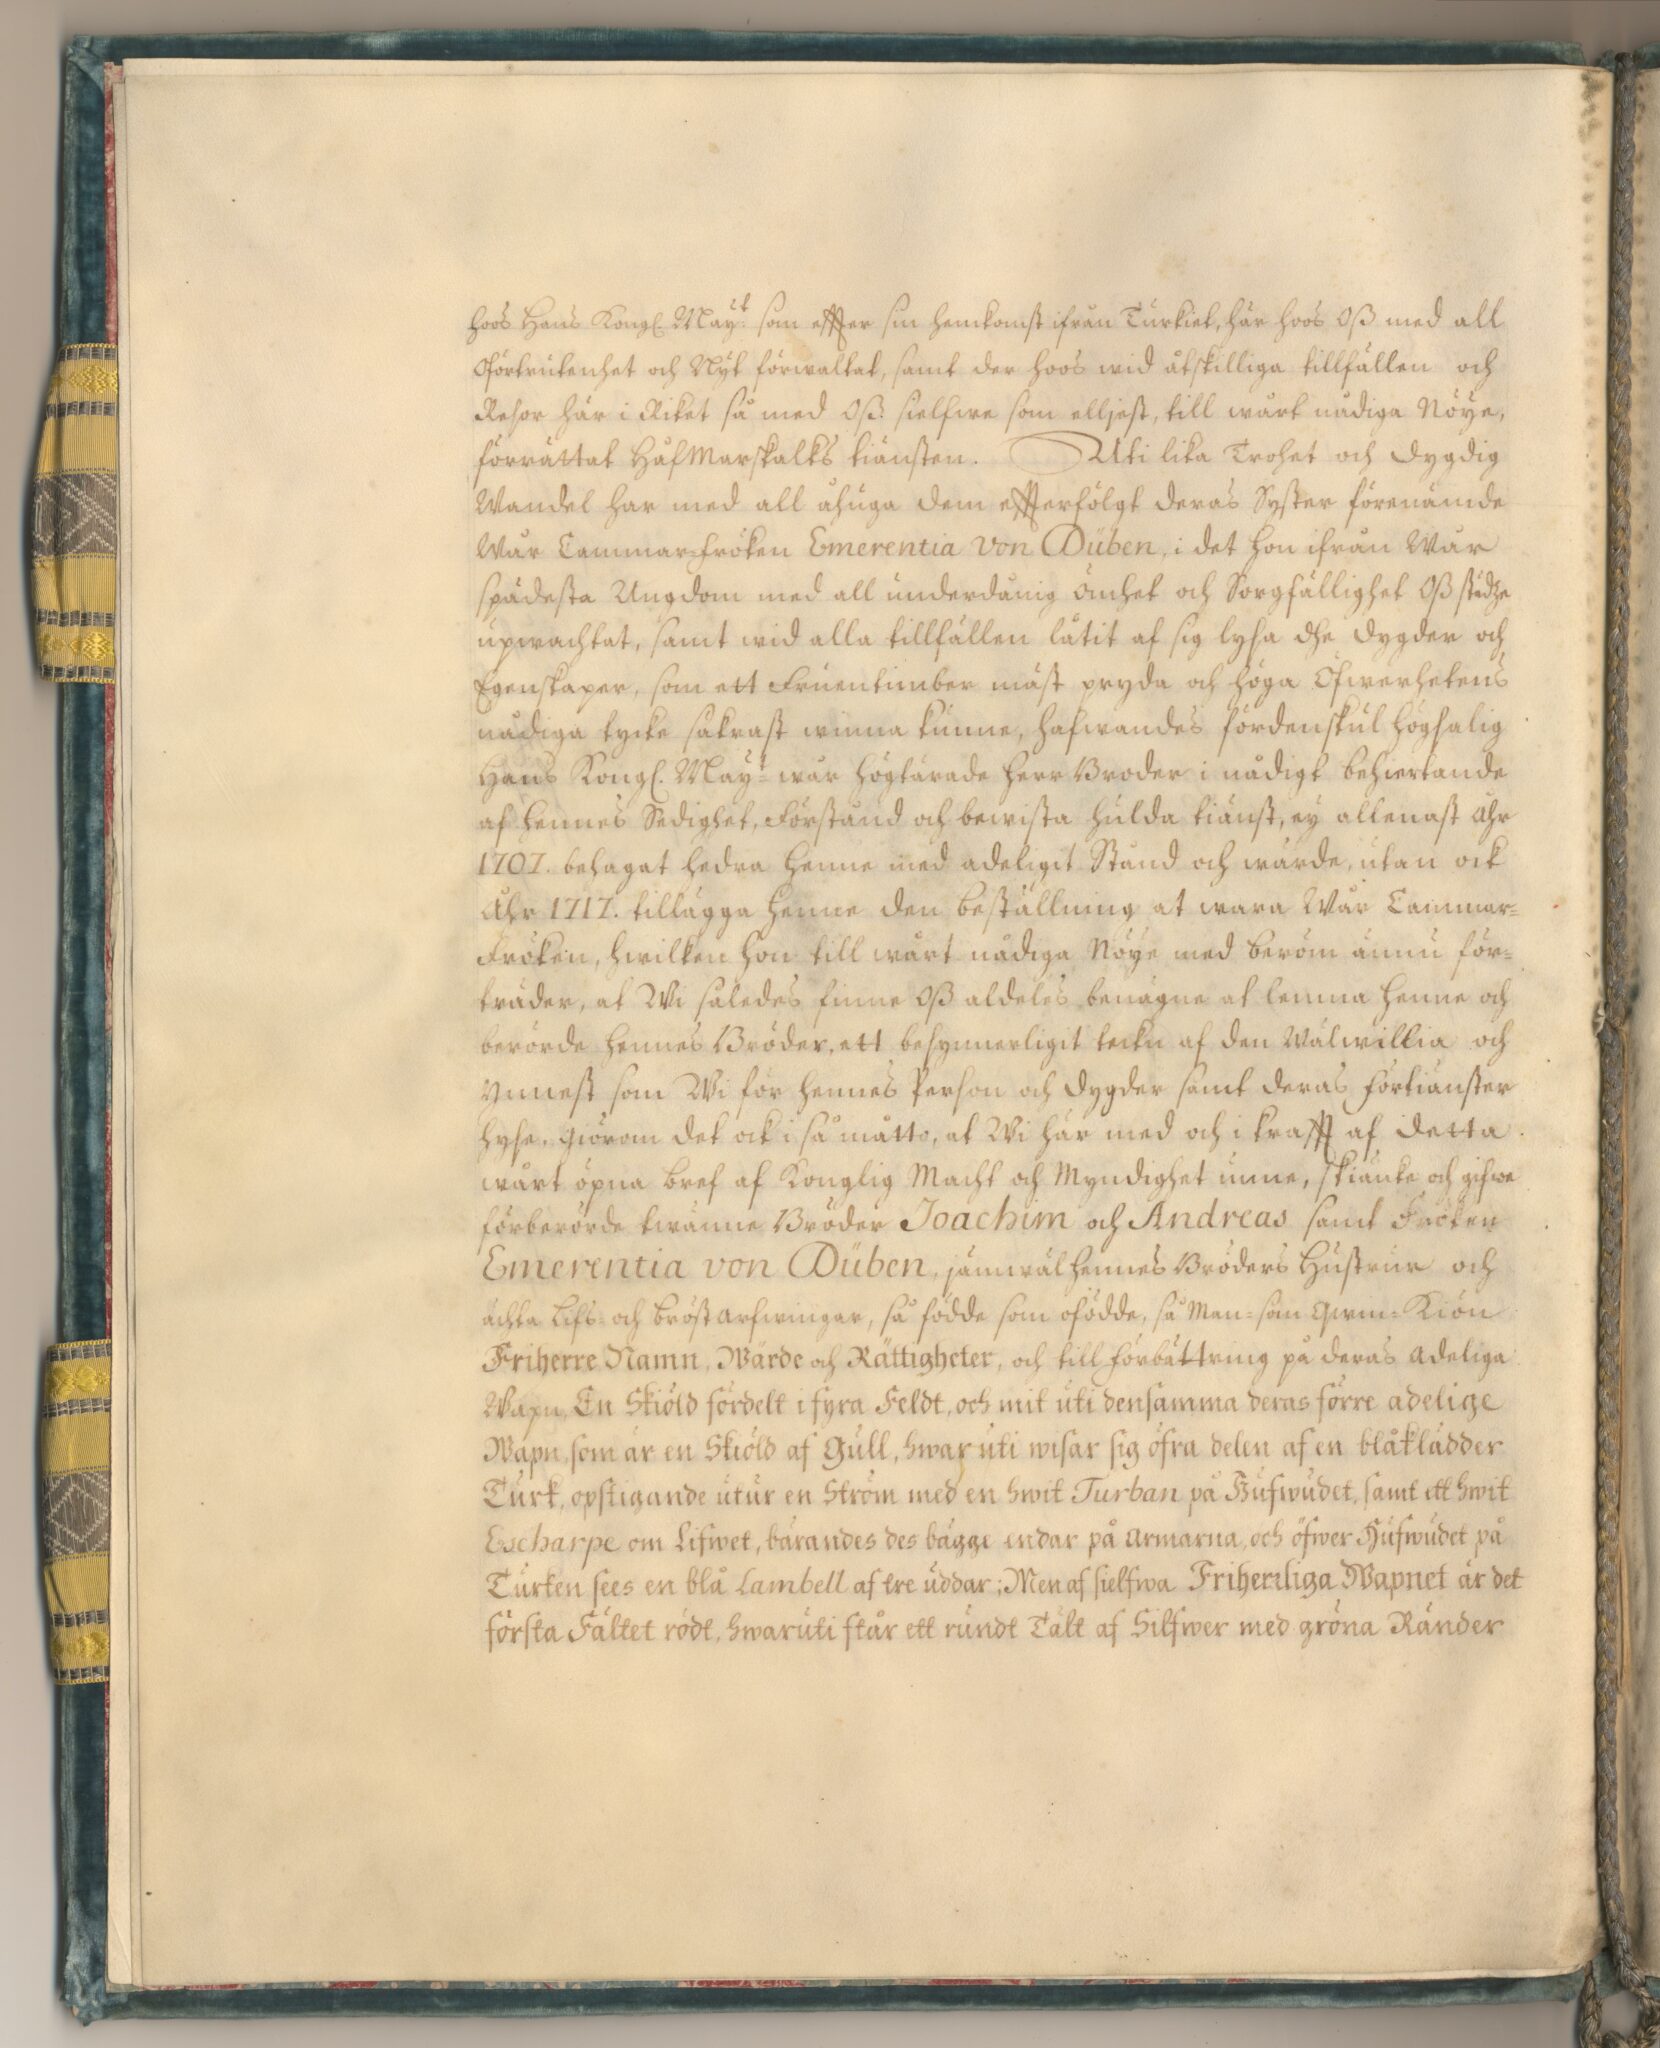 hoos Hans Kongl. May:tt som effter sin hemkomst ifrån Turkiet, här hoos Oß med all
Oförtrutenhet och Nyt förwaltat, samt der hoos wid åtskilliga tillfällen och
Resor här i Riket så med Oß sielfwe som elliest, till wårt nådiga Nöye,
förrättat HåfMarskalks tiänsten. Uti lika Trohet och dygdig
Wandel har med all åhuga dem effterfölgt deras Syster förenämde
Wår Cammar-fröken Emerentia von Düben, i det hon ifrån Wår
spädesta Ungdom med all underdånig ömhet och Sorgfällighet Oß städze
upwachtat, samt wid alla tillfällen låtit af sig lysa dhe dygder och
Egenskaper, som ett Fruentimber mäst pryda och höga Öfwerhetens
nådiga tycke säkrast winna kunne, hafwandes fördenskul högsalig
Hans Kongl. May:t wår högtärade Herr Broder i nådigt behiertande
af hennes Sedighet, Förstånd och bewista hulda tiänst, ey allenast Åhr
1707. behagat hedra henne med adeligit Stånd och wärde, utan ock
Åhr 1717. tillägga henne den beställning at wara Wår Cammar=
Fröken, hwilken hon till wårt nådiga Nöye med beröm ännu för=
träder, at Wi således finne Oß aldeles benägne at lemna henne och
berörde hennes Bröder, ett besynnerligit teckn af den Wälwillia och
Ynnest som Wi för hennes Person och dygder samt deras förtiänster
hyse. Giörom det ock i så måtto, at Wi här med och i krafft af detta
wårt öpna bref af Konglig Macht och Myndighet unne, skiänke och gifwe
förberörde twänne Bröder Joachim och Andreas samt Fröken
Emerentia von Düben, jämwäl hennes Bröders Hustrur och
ächta Lifs- och bröst arfwingar, så födde som ofödde, så Man- som Qwin-Kiön
Friherre Namn, Wärde och Rättigheter, och till förbättring på deras adeliga
Wapn, En Skiöld fördelt i fyra Feldt, och mit uti densamma deras förre adelige
Wapn, som är en Skiöld af Gull, hwar uti wisar sig öfra delen af en blåklädder
Turk, opstigande utur en Ström med en hwit Turban på Hufwudet, samt ett hwit
Escharpe om Lifwet, bärandes des bägge endar på armarna, och öfwer Hufwudet på
Turken sees en blå Lambell af tre uddar; Men af sielfwa Friherrliga Wapnet är det
första Fältet rödt, hwaruti står ett rundt Tält af Silfwer med gröna Ränder